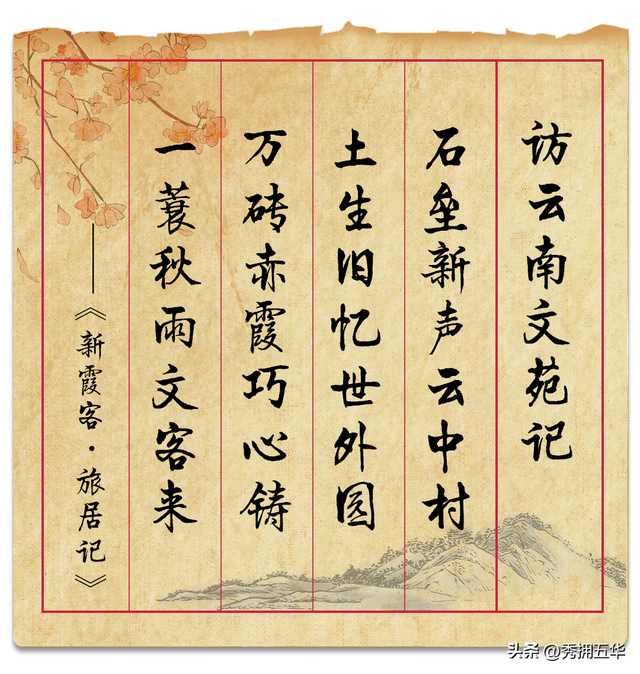 访云南文苑记
石垒新声云中村
土生旧忆世外园
万砖赤霞巧心铸
一蓑秋雨文客来
——《新霞客·旅居记》
头条 @秀拥五华